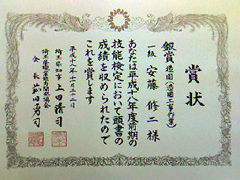 賞状
銀賞 造園(造園工事作業)
一級 安藤修二様
あなたは平成十八年度前期の
技能検定において頭書の
成績を収められたので
これを賞します
平成十八年十一月二十二日
埼玉県知事 上田清司
埼玉県職業能力開発協会
会長